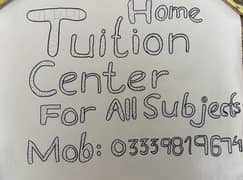 Home
Tuition
Center
For All Subjects
Mob: 03339819674